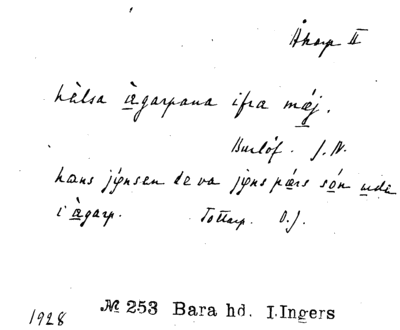 Åkarp II
hàlsa àgarpana ifra mǽj.
Burlöf. J. N.
hans jǿnsen de va jǿns pǽrs són ude
i àgarp. Tottarp. O. J.
1928 № 253 Bara hd. I.Ingers